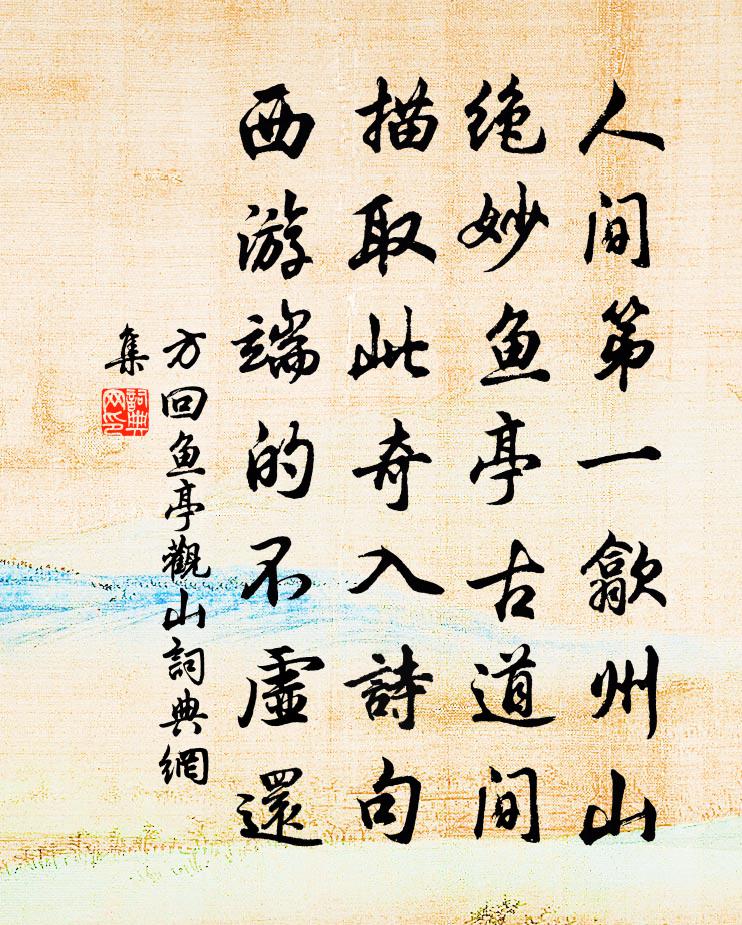 人间第一歙州山
绝妙鱼亭古道间
描取此奇入詩句
西游端的不虚還
方回鱼亭觀山詞典網
集
詞典
网印